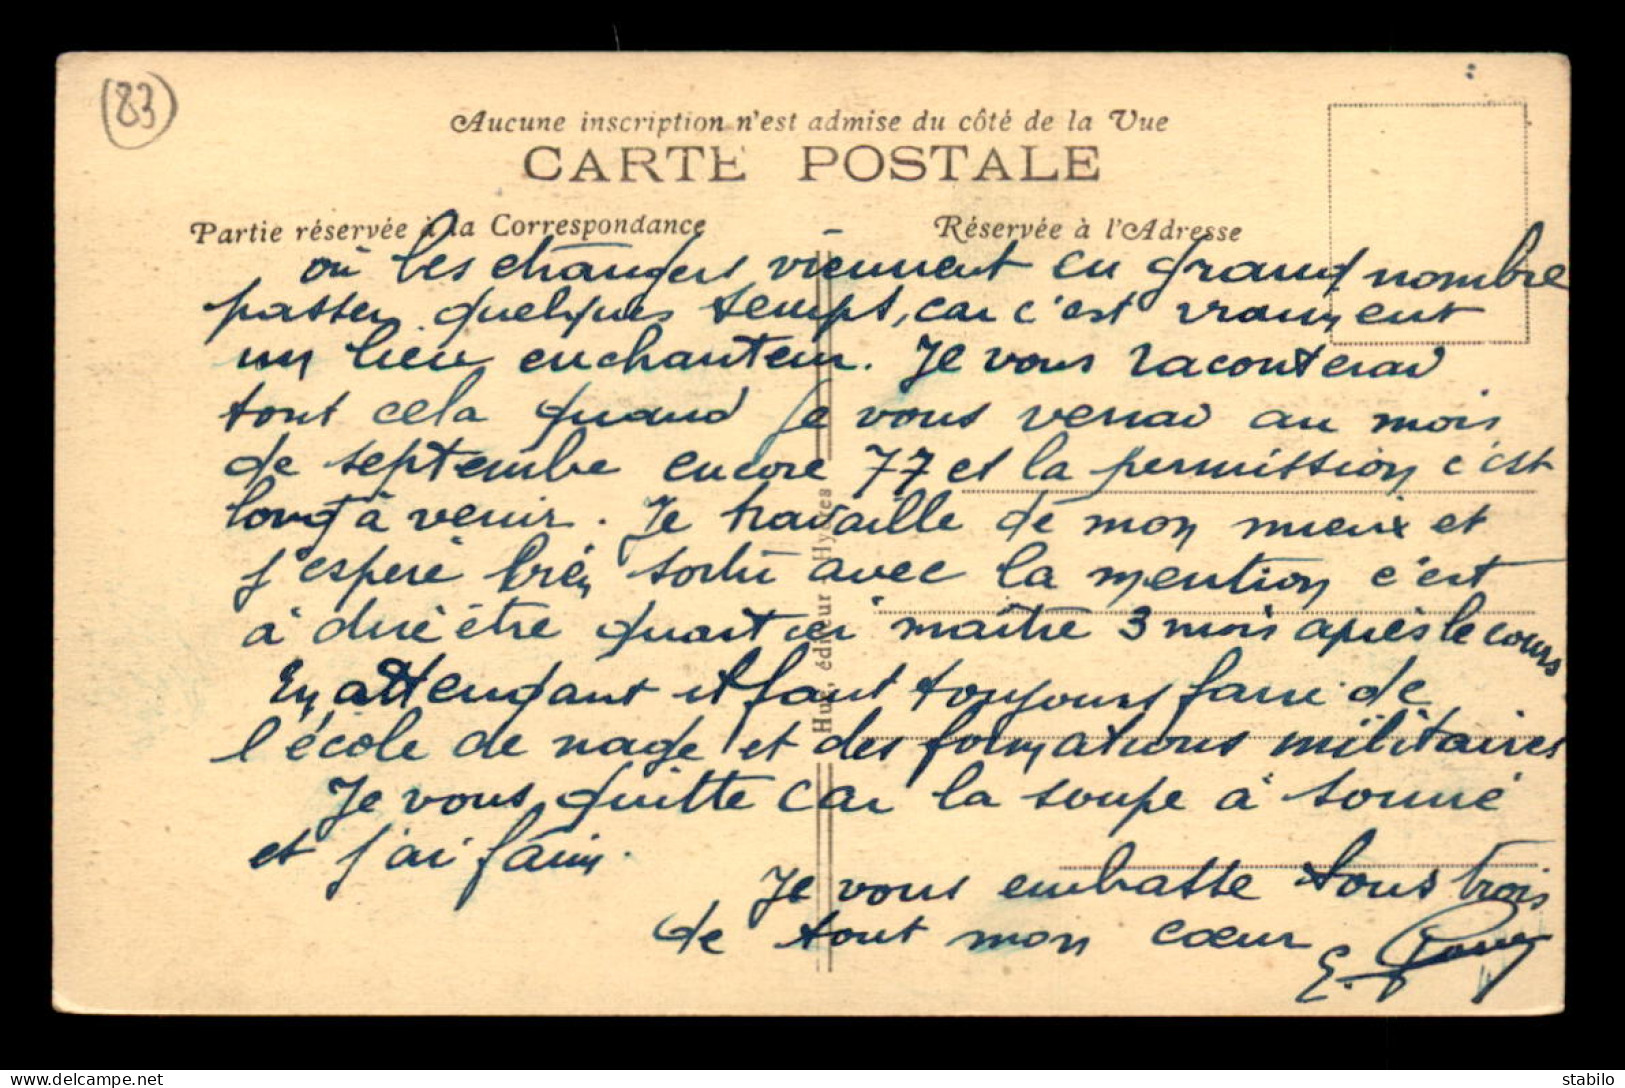 83
Aucune inscription n'est admise du côté de la Vue
CARTE POSTALE
Partie réservée à la Correspondance
Réservée à l'Adresse
où les étrangers viennent en grand nombre
passer quelques temps, car c'est vraiment
un lieu enchanteur. Je vous raconterai
tout cela quand je vous verrai au mois
de septembre encore 77 et la permission c'est
long à venir. Je travaille de mon mieux et
j'espère sortir avec la mention c'est
à dire être quartier maître 3 mois après le cours
En attendant il faut toujours faire de
l'école de nage et des formations militaires
Je vous quitte car la soupe à sonné
et j'ai faim.
Je vous embrasse tous trois
de tout mon cœur
E.
éditeur Hyères
delcampe.net
stabilo